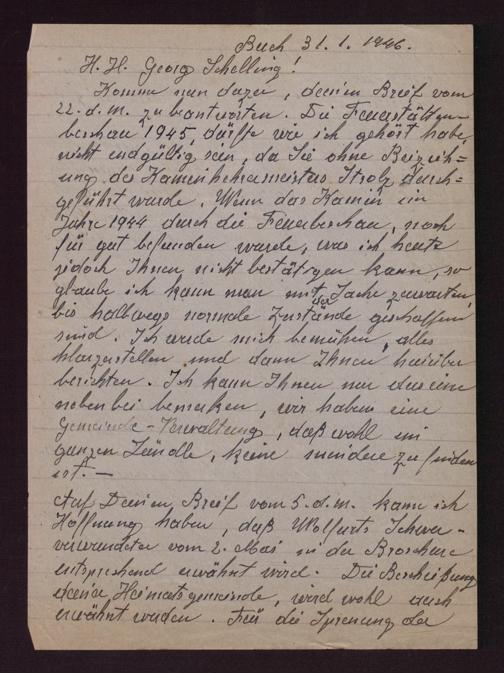 Buch 31.1.1946.
H. H. Georg Schelling!
Komme nun dazu, deinen Breif vom
22. d. m. zu bantworten. Die Feuerstätten-
beschau 1945, dürfte wie ich gehört habe,
nicht endgültig sein, da Sie ohne Beizieh=
ung des Kaminkehrermeisters Strolz durch=
geführt wurde. Wenn das Kamin im
Jahre 1944 durch die Feuerbeschau, noch
für gut befunden wurde, was ich heute
jedoch Ihnen nicht bestätigen kann, so
glaube ich kann man mit der Sache zuwarten,
bis halbwegs normale Zustände geschaffen
sind. Ich werde mich bemühen, alles
klarzustellen und dann Ihnen hierüber
berichten. Ich kann Ihnen nur das eine
nebenbei bemerken, wir haben eine
Gemeinde-Verwaltung, daß wohl im
ganzen Ländle, keine mindere zu finden
ist. —
Auf Deinen Breif vom 5. d. m. kann ich
Hoffnung haben, daß Wolfurts Schwer-
verwundeter vom 2. Mai in der Broschüre
entsprechend erwähnt wird. Die Beschießung
deiner Heimatsgemeinde, wird wohl auch
erwähnt werden. Für die Sprenung der